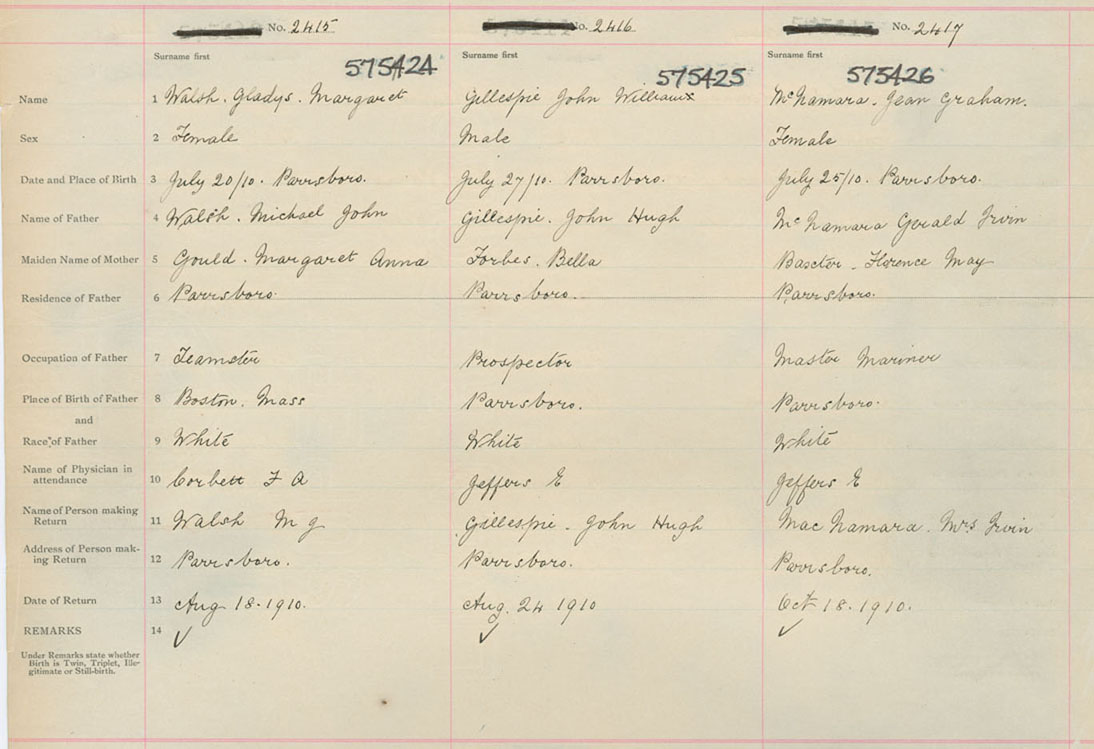 No. 2415 No. 2416 No. 2417
Surname first Surname first Surname first
575424 575425 575426
Name 1 Walsh. Gladys. Margaret Gillespie John William McNamara. Jean Graham.
Sex 2 Female Male Female
Date and Place of Birth 3 July 20/10. Parrsboro. July 27/10. Parrsboro. July 25/10. Parrsboro.
Name of Father 4 Walsh. Michael John Gillespie. John Hugh McNamara Gerald Irvin
Maiden Name of Mother 5 Gould. Margaret Anna Forbes. Bella Baxter. Florence May
Residence of Father 6 Parrsboro. Parrsboro. Parrsboro.
Occupation of Father 7 Teamster Prospector Master Mariner
Place of Birth of Father 8 Boston. Mass Parrsboro. Parrsboro.
and
Race of Father 9 White White White
Name of Physician in
attendance 10 Corbett F A Jeffers E Jeffers E
Name of Person making
Return 11 Walsh M J Gillespie. John Hugh MacNamara. Mrs Irvin
Address of Person mak-
ing Return 12 Parrsboro. Parrsboro. Parrsboro.
Date of Return 13 Aug 18.1910. Aug. 24 1910 Oct 18.1910.
REMARKS 14 ✓ ✓ ✓
Under Remarks state whether
Birth is Twin, Triplet, Ille-
gitimate or Still-birth.